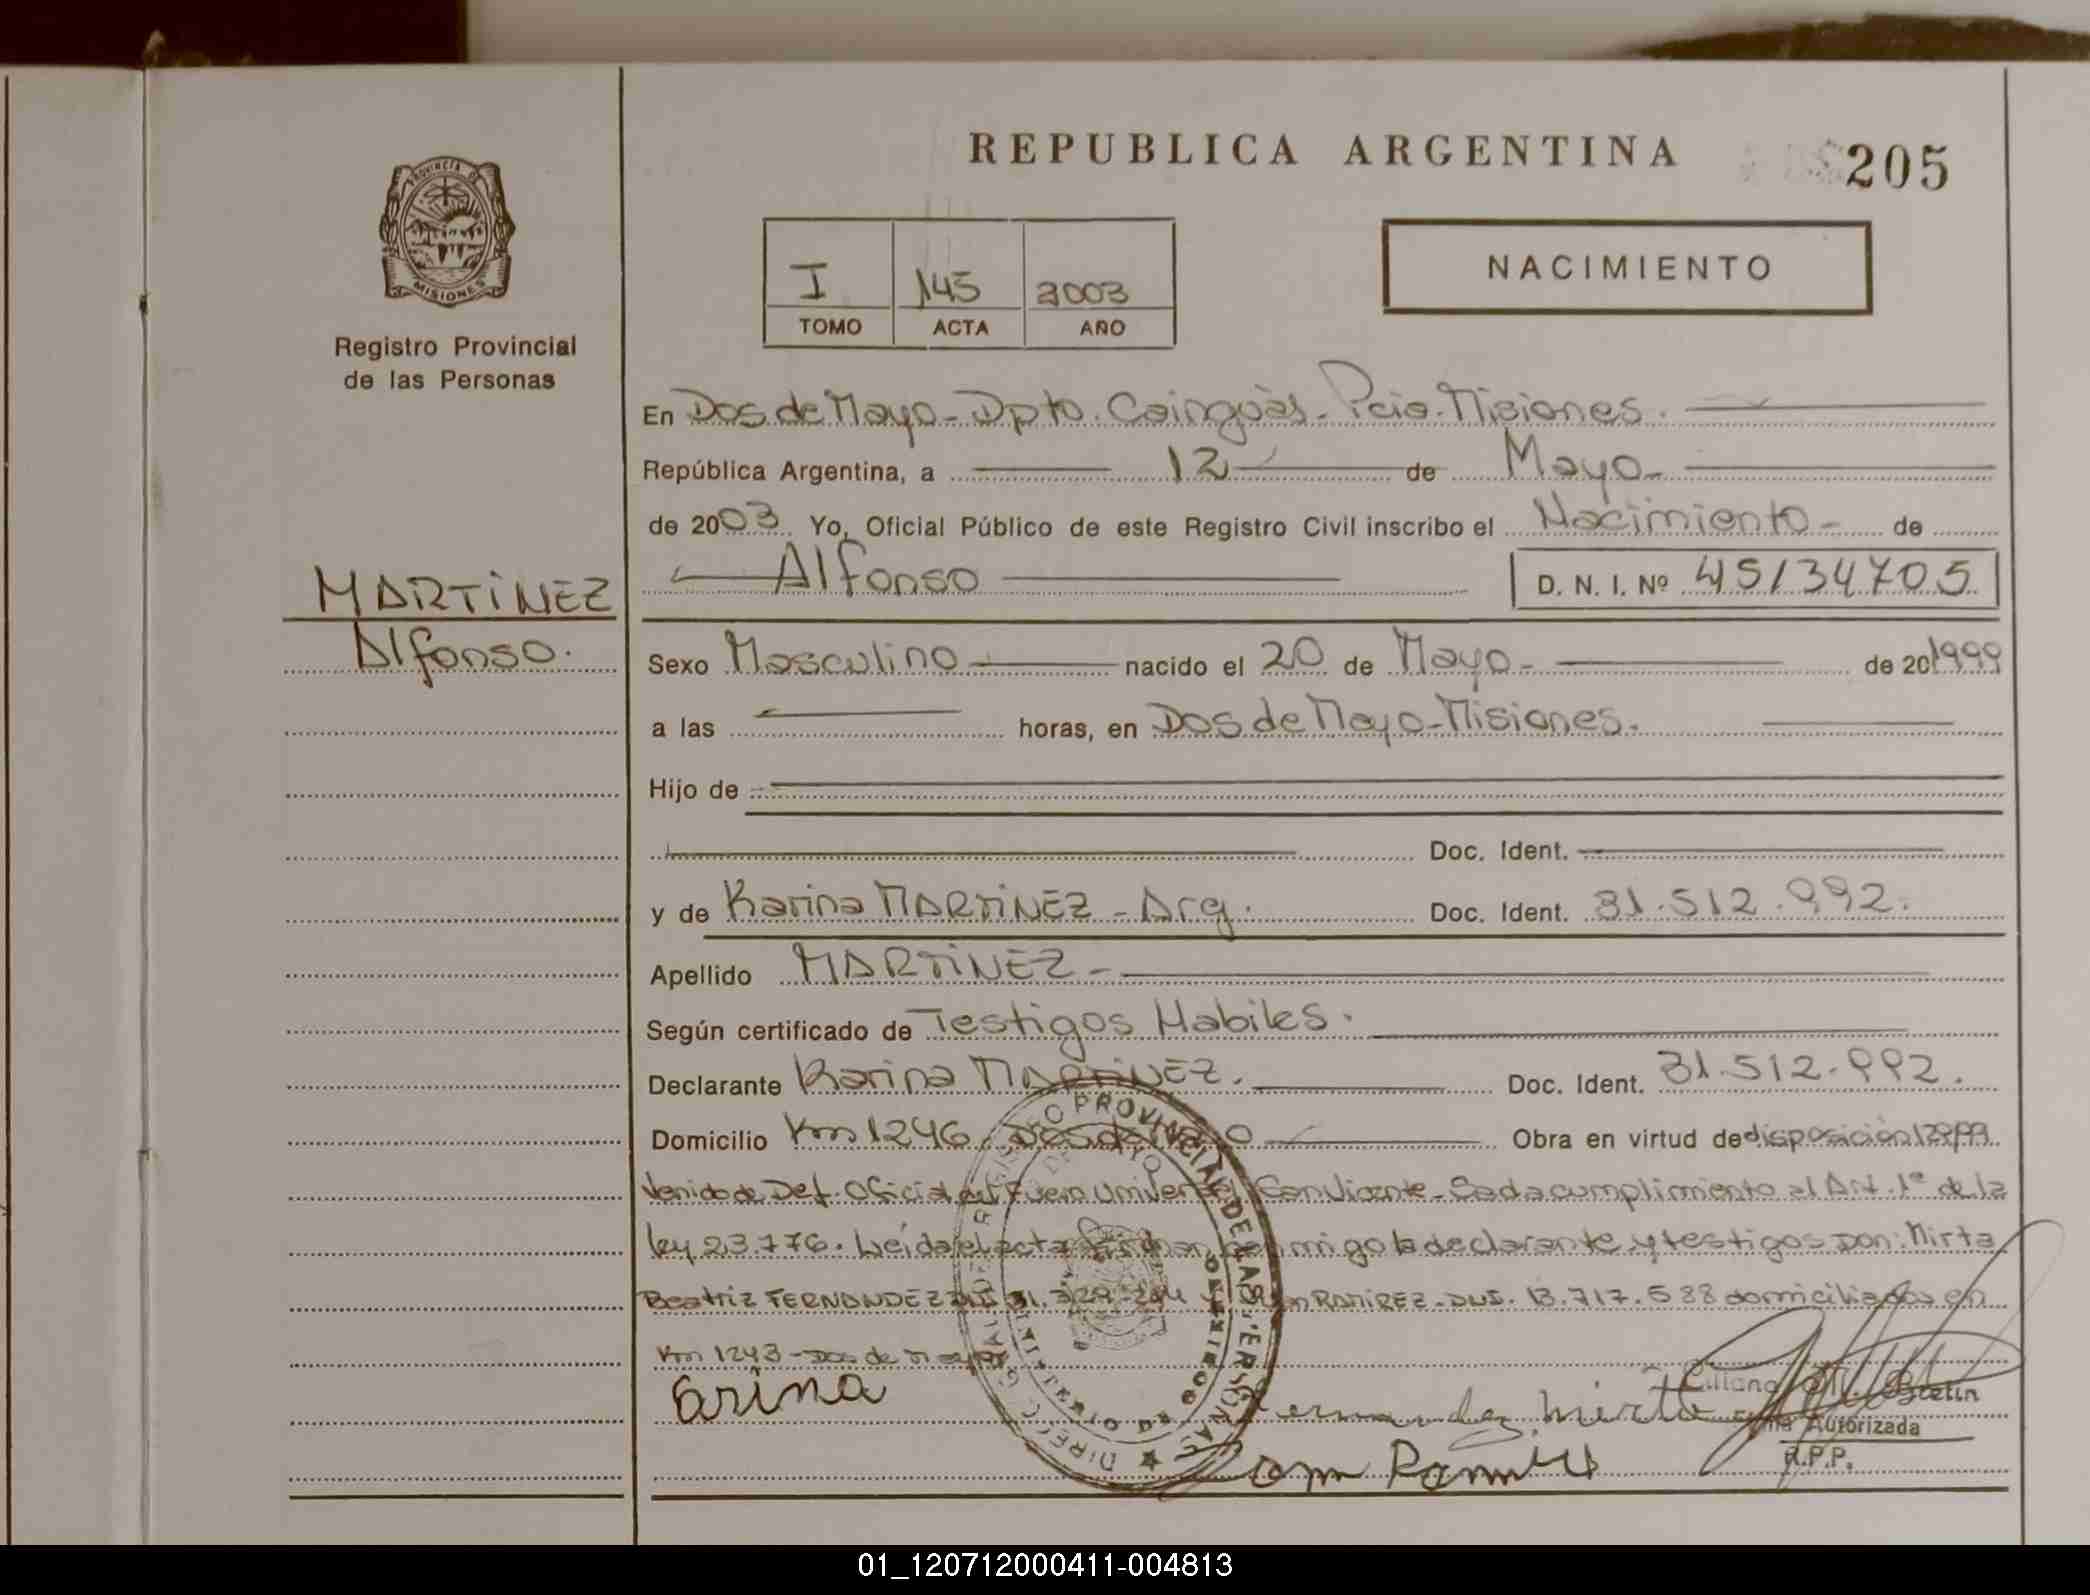 REPUBLICA ARGENTINA
205
PROVINCIA DE
MISIONES
Registro Provincial
de las Personas
I 145 2003
TOMO ACTA AÑO
NACIMIENTO
En Dos de Mayo - Dpto. Cainguás - Pcia. Misiones.
República Argentina, a 12 de Mayo -
de 2003 Yo, Oficial Público de este Registro Civil inscribo el Nacimiento - de
Alfonso D. N. I. Nº 45134705
MARTINEZ
Alfonso.
Sexo Masculino nacido el 20 de Mayo - de 20 1999
a las horas, en Dos de Mayo - Misiones.
Hijo de
Doc. Ident.
y de Karina MARTINEZ - Arg. Doc. Ident. 31.512.992.
Apellido MARTINEZ -
Según certificado de Testigos Habiles.
Declarante Karina MARTINEZ. Doc. Ident. 31.512.992.
Domicilio Km 1246 Obra en virtud de disposición 129/99
Venido de Def. Oficial del Fuero Universal San Vicente - Se da cumplimiento al Art. 1º de la
ley 23.776. Leída el acta conmigo la declarante y testigos Don: Mirta
Beatriz FERNANDEZ DNI 31.329.244 RAMIREZ - DNI. 13.717.588 domiciliados en
Km 1243 - Dos de Mayo
arina
Fernandez Mirta
Ramirez
Autorizada
R.P.P.
01_120712000411-004813